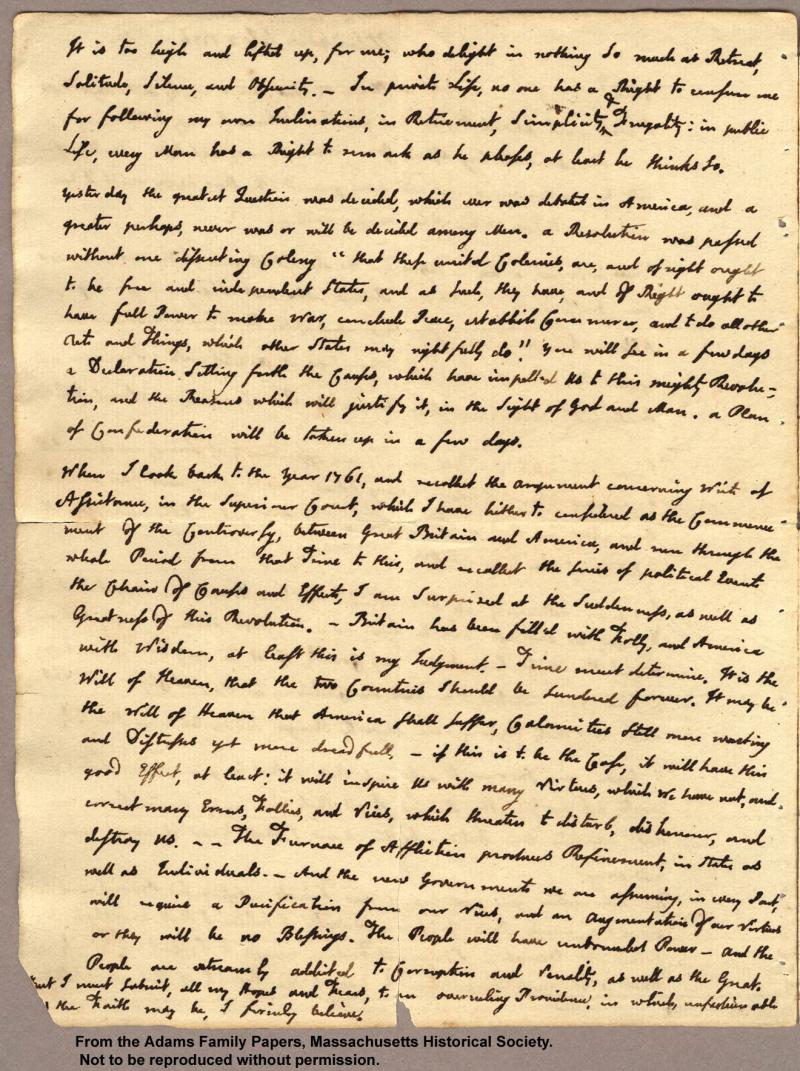 It is too high and lifted up, for me; who delight in nothing so much as Retreat,
Solitude, Silence, and Obscurity. — In private Life, no one has a Right to censure me
for following my own Inclinations, in Retirement, Simplicity, & Frugality: in public
Life, every Man has a Right to remark as he pleases, at least he thinks so.
Yesterday the greatest Question was decided, which ever was debated in America, and a
greater perhaps, never was or will be decided among Men. a Resolution was passed
without one dissenting Colony "that these united Colonies, are, and of right ought
to be free and independent States, and as such, they have, and of Right ought to
have full Power to make War, conclude Peace, establish Commerce, and to do all other
Acts and Things, which other States may rightfully do." You will see in a few days
a Declaration setting forth the Causes, which have impelled Us to this mighty Revolu-
tion, and the Reasons which will justify it, in the Sight of God and Man. a Plan
of Confederation will be taken up in a few days.
When I look back to the Year 1761, and recollect the argument concerning Writs of
Assistance, in the Superiour Court, which I have hitherto considered as the Commence-
ment of the Controversy, between Great Britain and America, and run through the
whole Period from that Time to this, and recollect the series of political Events
the Chain of Causes and Effects, I am Surprized at the Suddenness, as well as
Greatness of this Revolution. — Britain has been fill'd with Folly, and America
with Wisdom, at least this is my Judgment. — Time must determine. It is the
Will of Heaven, that the two Countries should be sundered forever. It may be
the Will of Heaven that America shall suffer, Calamities still more wasting
and Distresses yet more dreadfull, — if this is to be the Case, it will have this
good Effect, at least: it will inspire Us with many Virtues, which We have not, and
correct many Errors, Follies, and Vices, which threaten to disturb, dishonour, and
destroy Us. — — The Furnace of Affliction produces Refinement, in States as
well as Individuals. — And the new Governments we are assuming, in every Part,
will require a Purification from our Vices, and an Augmentation of our Virtues
or they will be no Blessings. The People will have unbounded Power — and the
People are extreamly addicted to Corruption and Venality, as well as the Great.
But I must submit, all my Hopes and Fears, to an overruling Providence, in which, unfashionable
as the Faith may be, I firmly believe.
From the Adams Family Papers, Massachusetts Historical Society.
Not to be reproduced without permission.